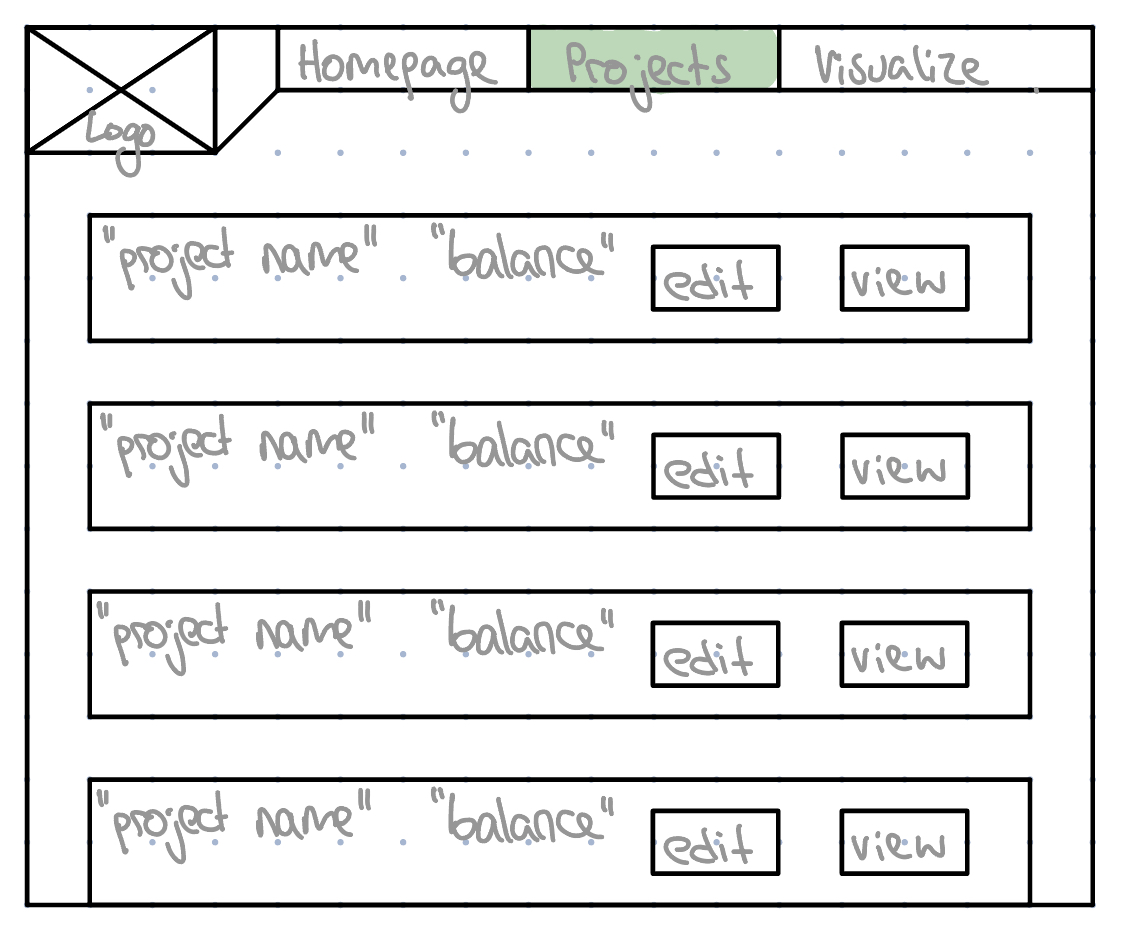 Homepage Projects Visualize
Logo
"project name" "balance" edit view
"project name" "balance" edit view
"project name" "balance" edit view
"project name" "balance" edit view